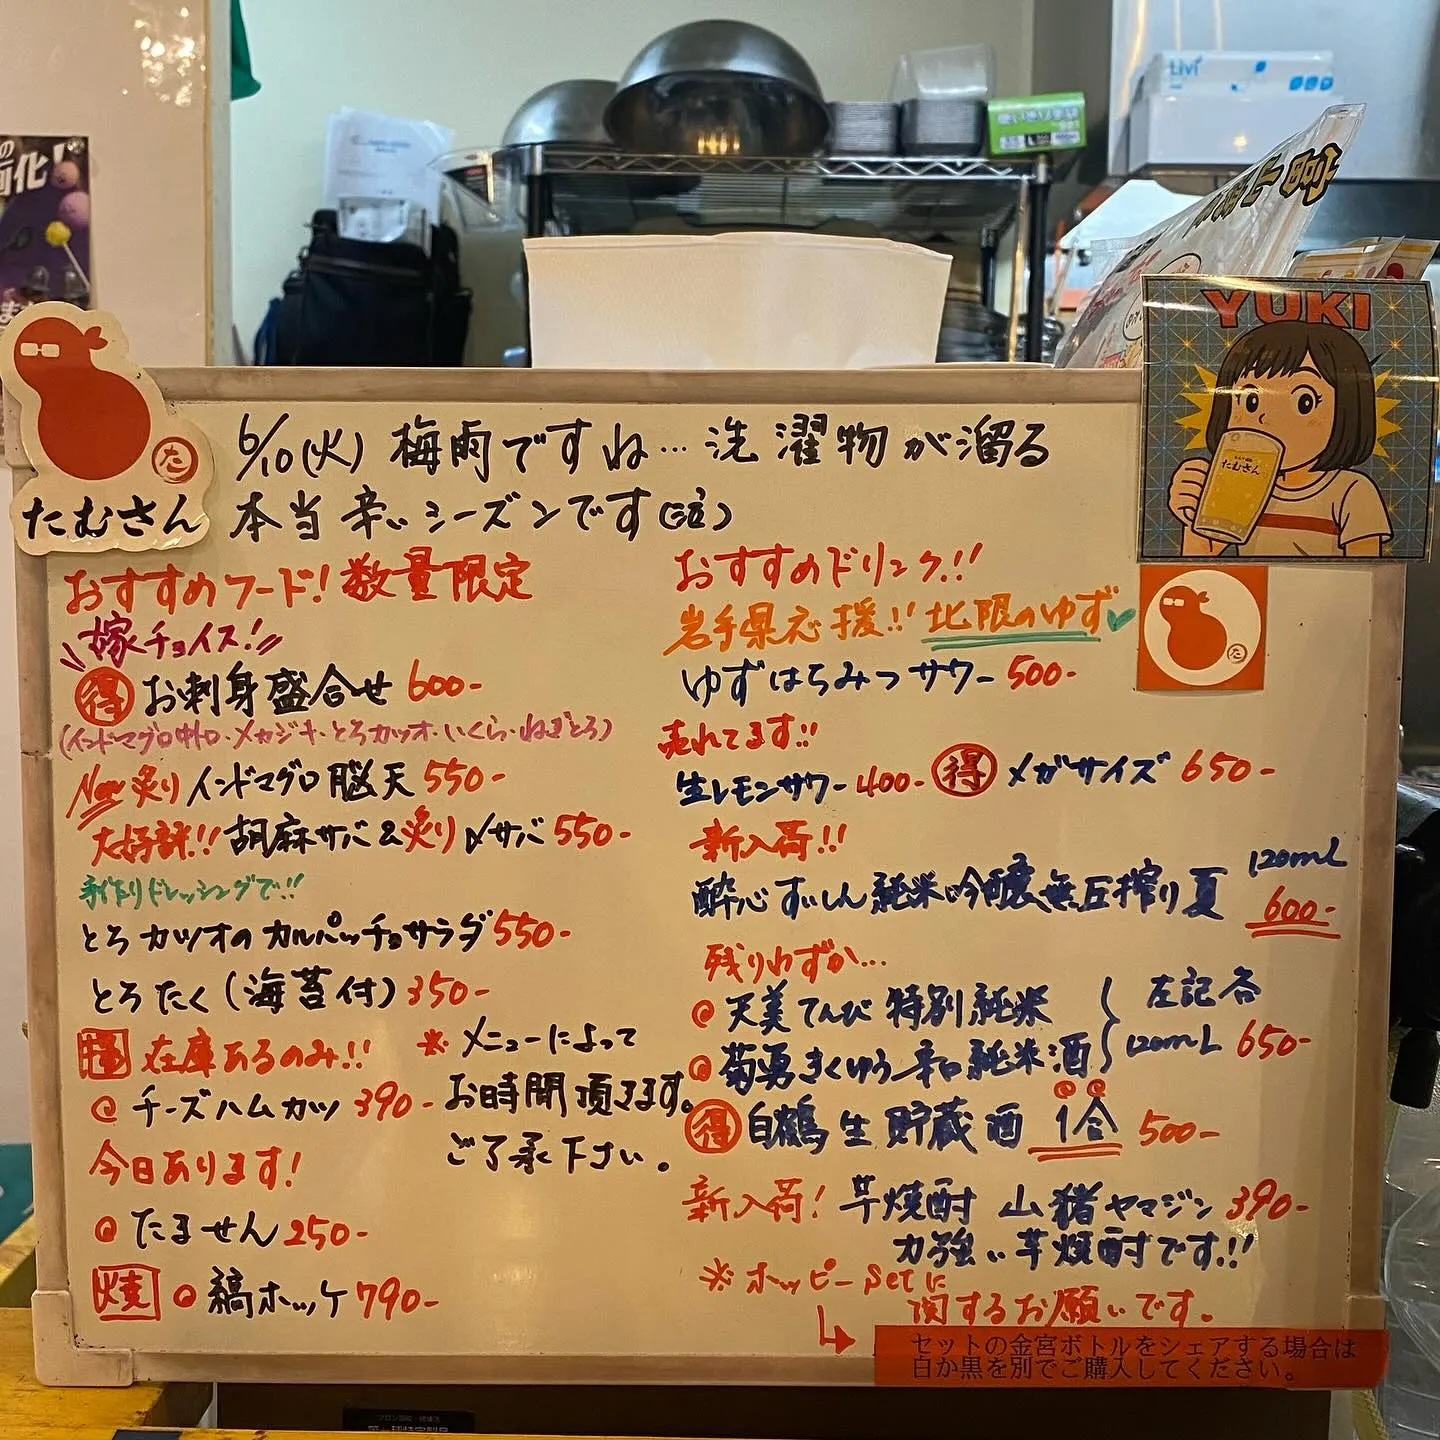 Livi
YUKI
たむさん
た
たむさん
6/10(火) 梅雨ですね…洗濯物が溜る
本当辛いシーズンです(泣)
おすすめフード!数量限定
嫁チョイス!
得 お刺身盛合せ 600-
(インドマグロ中トロ・メカジキ・とろカツオ・いくら・ねぎとろ)
New 炙りインドマグロ脳天 550-
大好評!! 胡麻サバ&炙り〆サバ 550-
手作りドレッシングで!!
とろカツオのカルパッチョサラダ 550-
とろたく(海苔付) 350-
揚 在庫あるのみ!!
チーズハムカツ 390-
※メニューによって
お時間頂きます。
ご了承下さい。
今日あります!
たません 250-
焼 縞ホッケ 790-
おすすめドリンク!!
岩手県応援!! 北限のゆず
ゆずはちみつサワー 500-
売れてます!!
生レモンサワー 400- 得 メガサイズ 650-
新入荷!!
酔心 すいしん 純米吟醸無圧搾り 夏 120mL 600-
残りわずか…
天美 てんび 特別純米
菊勇 きくゆう 辛口純米酒
左記各
120mL 650-
得 白鶴 生貯蔵酒 1合 500-
新入荷! 芋焼酎 山猪 ヤマジシ 390-
力強い芋焼酎です!!
※ホッピーsetに
関するお願いです。
セットの金宮ボトルをシェアする場合は
白か黒を別でご購入してください。